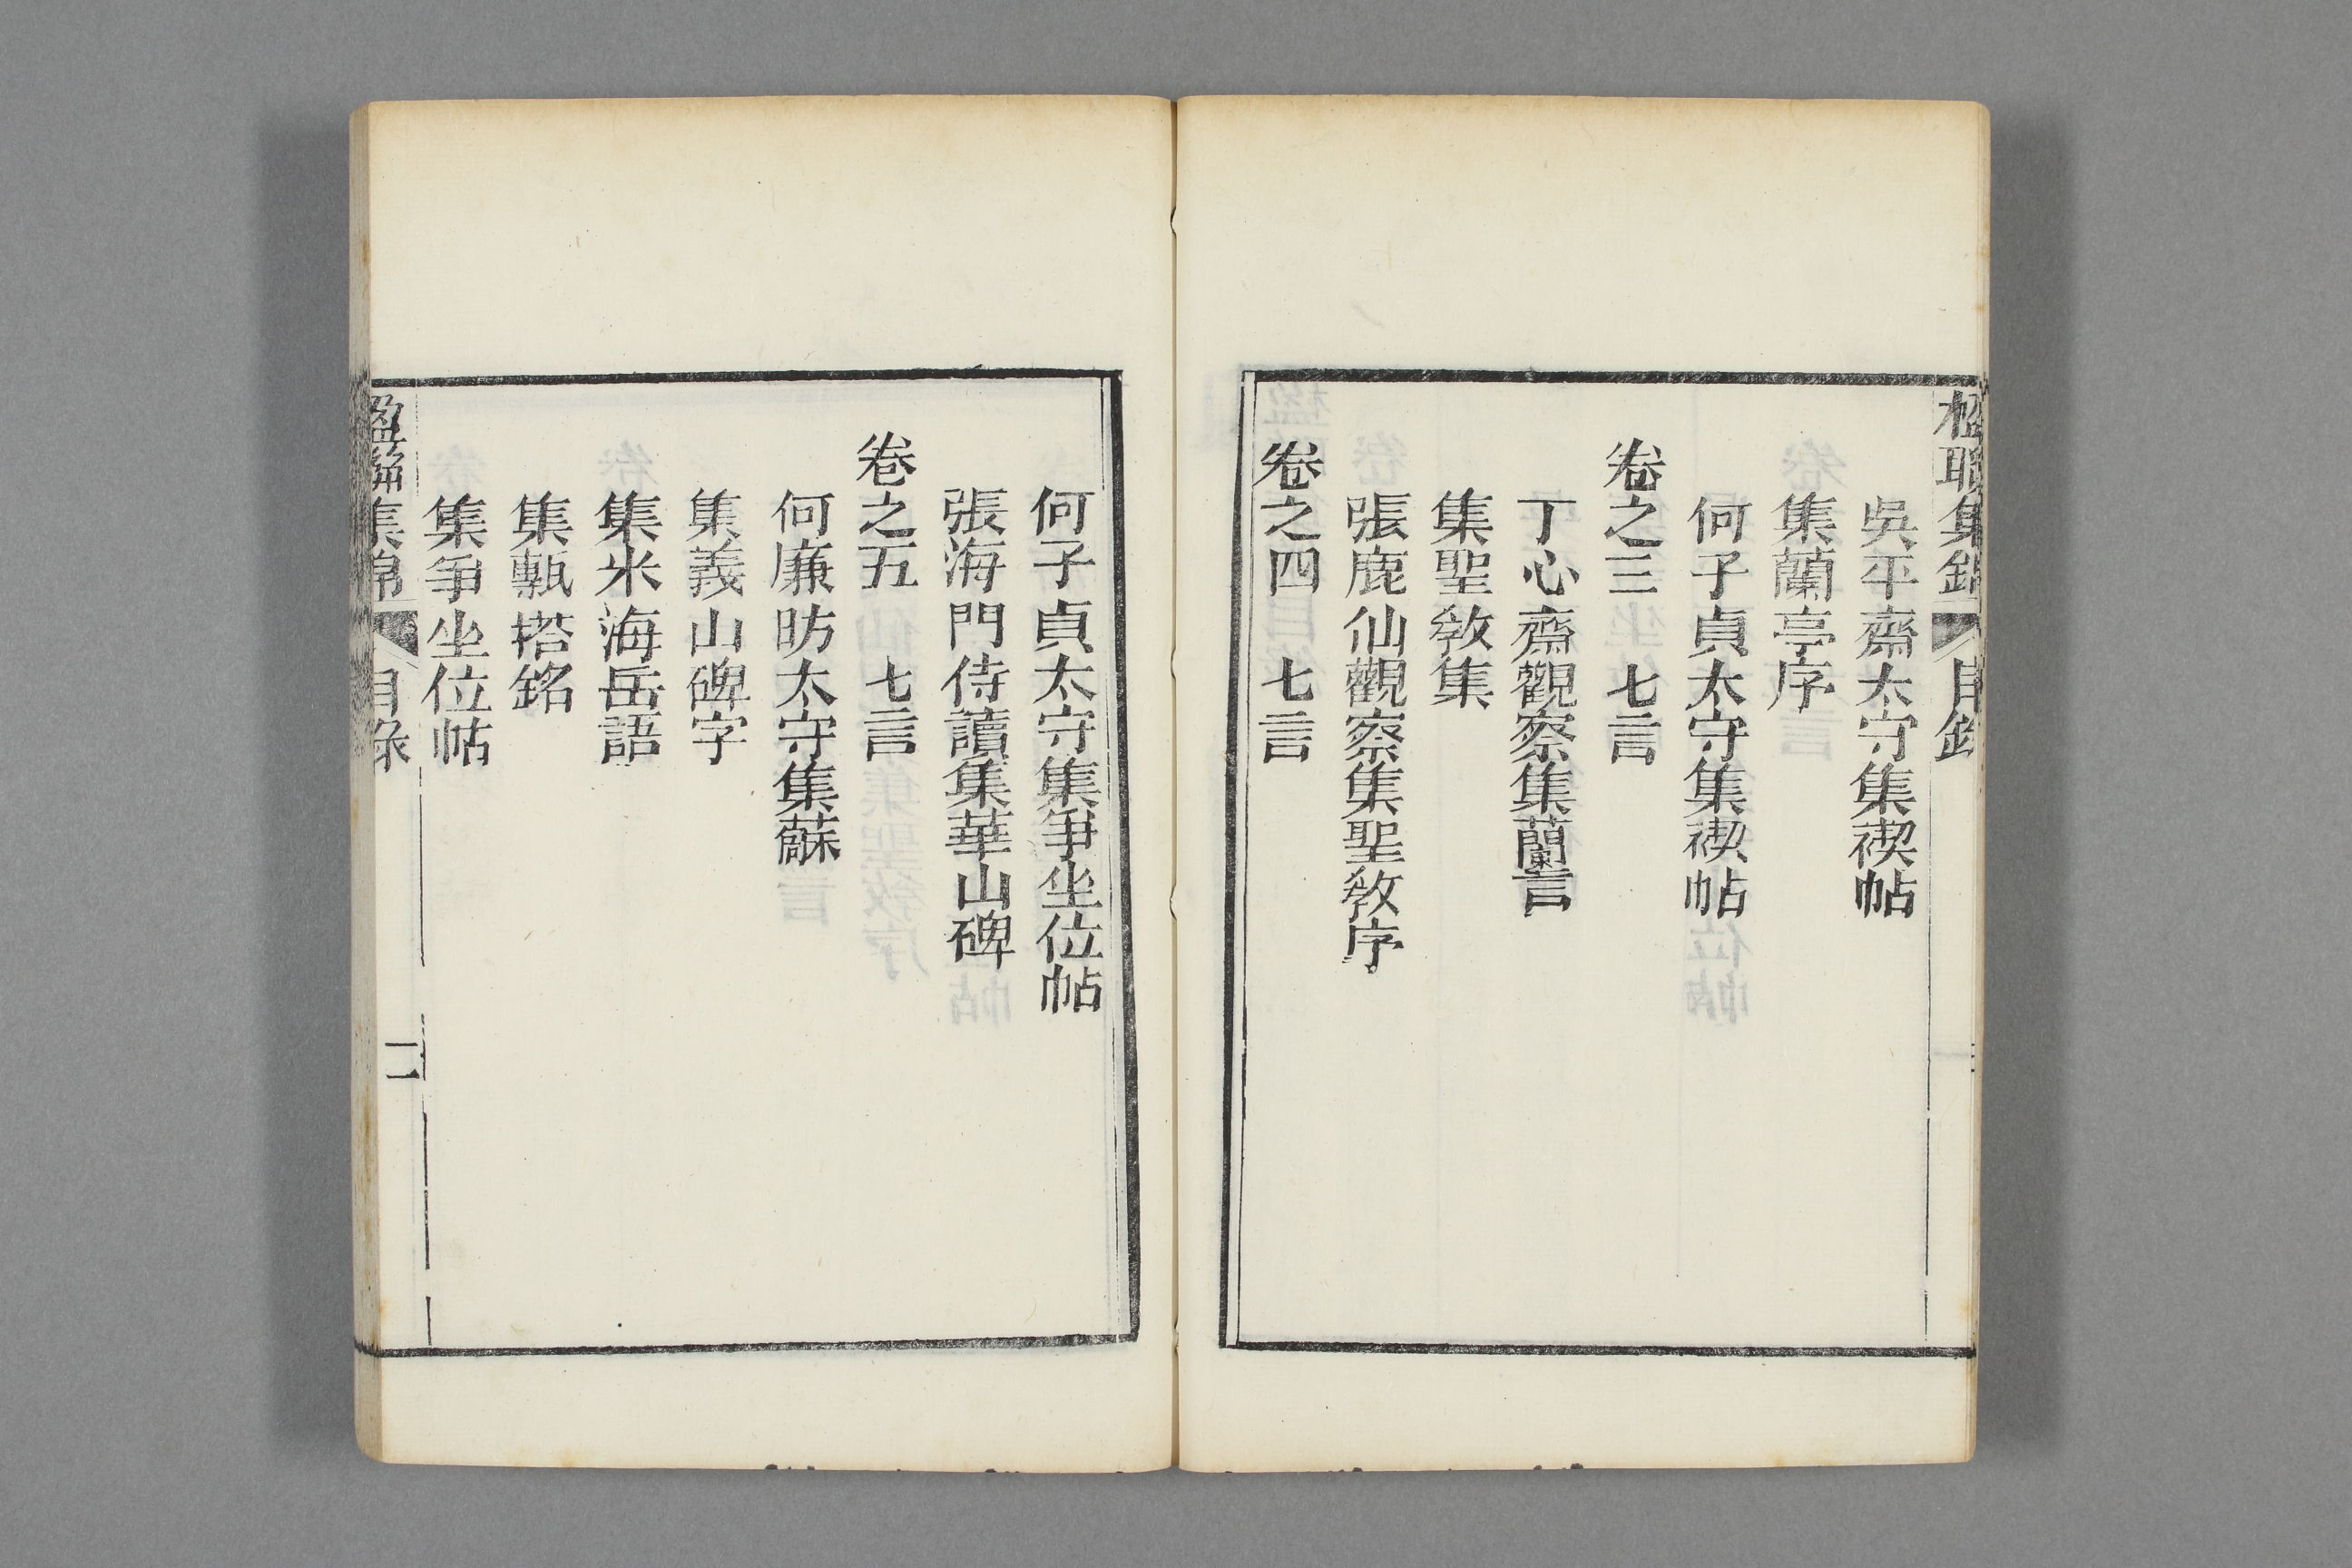 楹聯集錦 目錄
吳平齋太守集禊帖
集蘭亭序
何子貞太守集禊帖
卷之三 七言
丁心齋觀察集蘭言
集聖敎集
張鹿仙觀察集聖敎序
卷之四 七言
何子貞太守集爭坐位帖
張海門侍讀集華山碑
卷之五 七言
何廉昉太守集蘇
集義山碑字
集米海岳語
集甎塔銘
集爭坐位帖
楹聯集錦 目錄 二